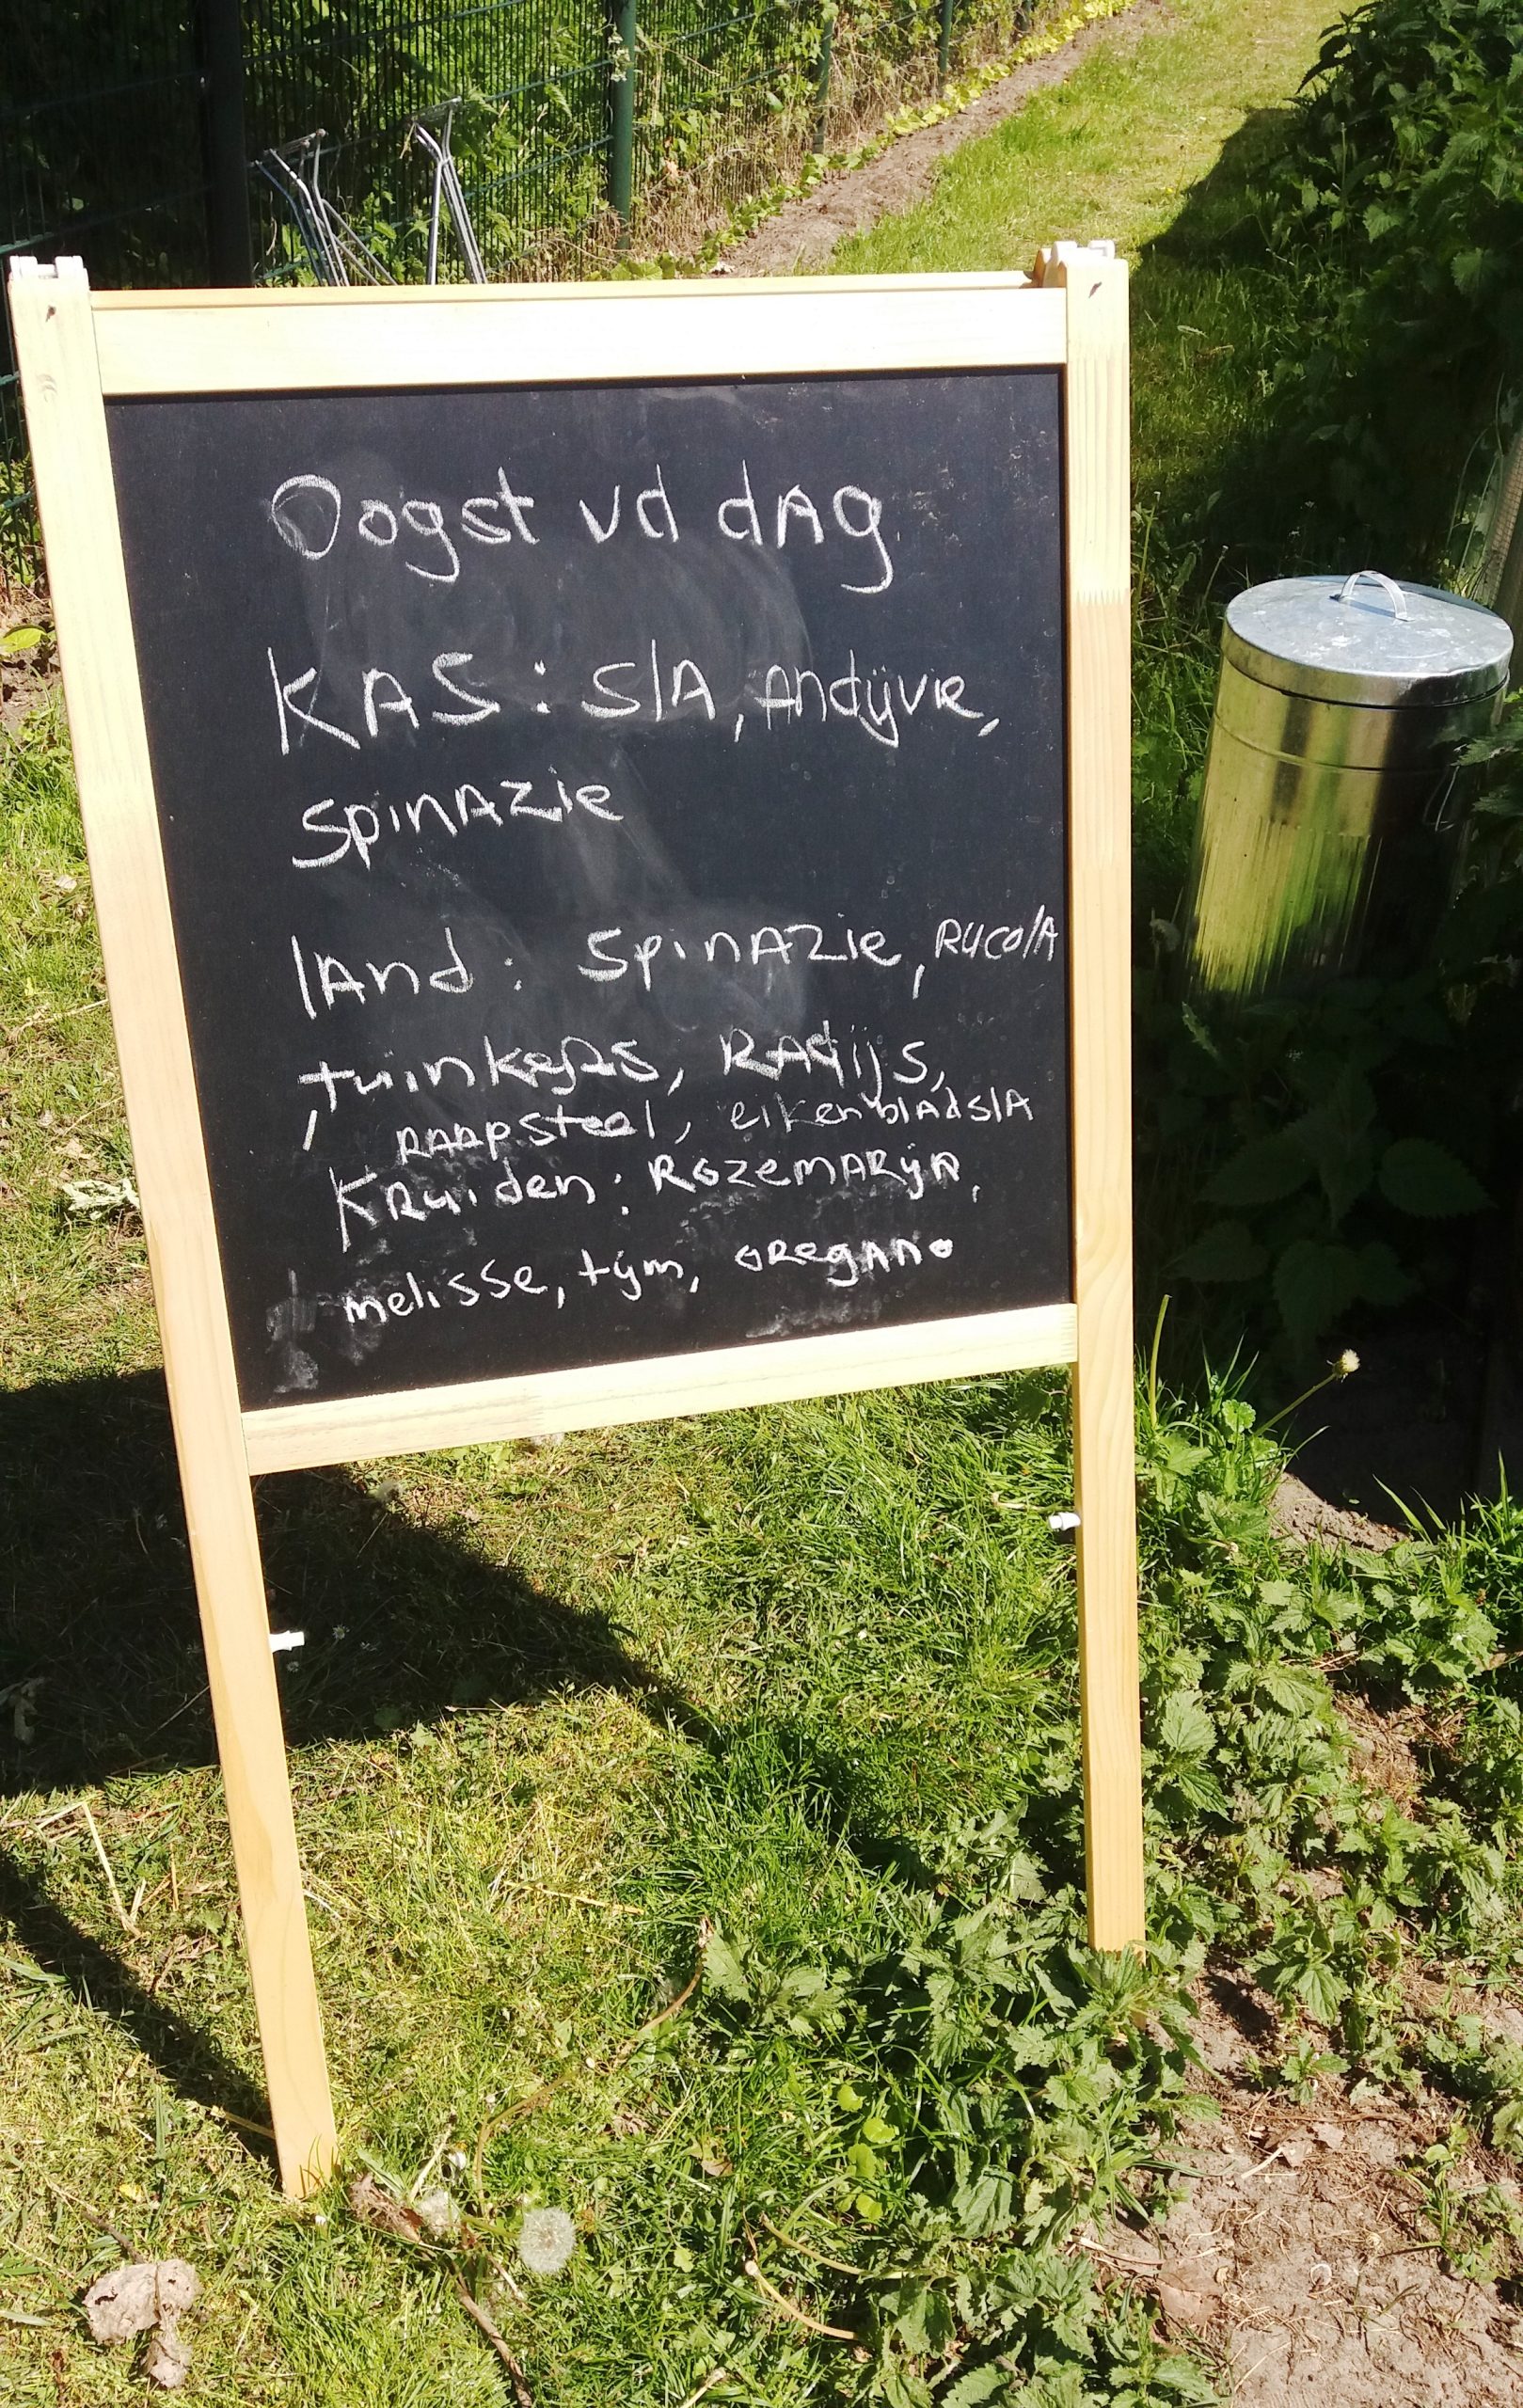 Oogst vd dag
KAS: SlA, Andijvie,
SpinAzie
lAnd: SpinAzie, RucolA
, tuinkers, RAdijs,
RAApsteel, eikenblAdslA
KRuiden: RozemARijn,
melisse, tijm, oRegAno